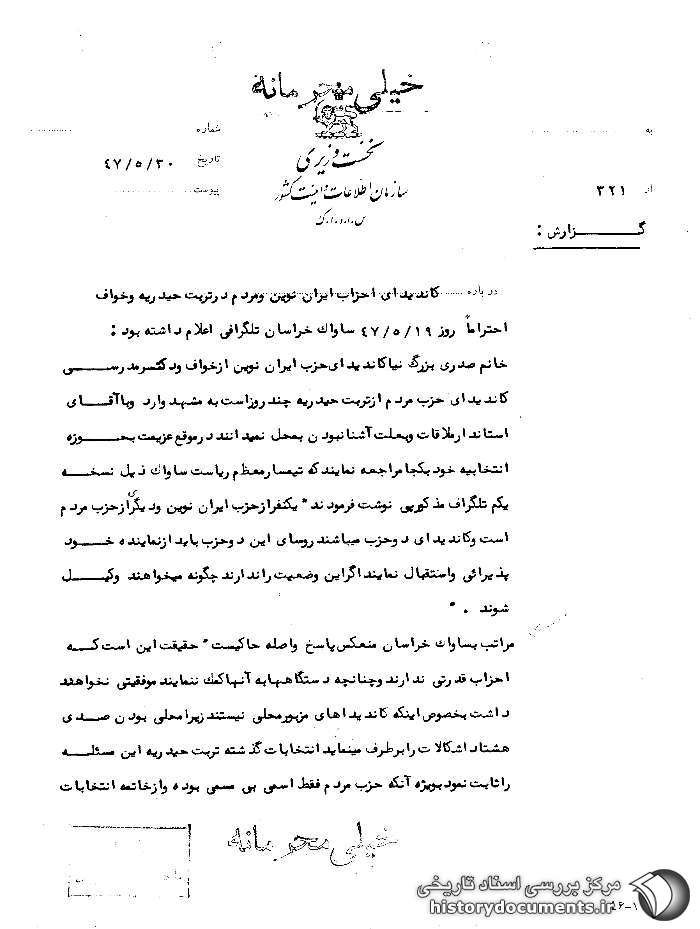 خیلی محرمانه
نخست وزیری
سازمان اطلاعات و امنیت کشور
س.ا.و.ا.ک
به
از ۳۲۱
شماره
تاریخ ۴۷/۵/۳۰
پیوست
گزارش :
درباره کاندیدای احزاب ایران نوین ومردم درتربت حیدریه وخواف
احتراماً روز ۴۷/۵/۱۹ ساواك خراسان تلگرافی اعلام داشته بود :
خانم صدری بزرگ نیاکاندیدای حزب ایران نوین ازخواف ودکترمدرسی
کاندیدای حزب مردم ازتربت حیدریه چند روزاست به مشهد وارد وباآقای
استاندارملاقات وبعلت آشنانبودن بمحل نمیدانند درموقع عزیمت بحوزه
انتخابیه خود بکجامراجعه نمایند که تیمسارمعظم ریاست ساواك ذیل نسخه
یکم تلگراف مذکورپی نوشت فرمودند " یکنفرازحزب ایران نوین ودیگری ازحزب مردم
است وکاندیدای دوحزب میباشند روسای این دوحزب باید ازنماینده خود
پذیرائی واستقبال نمایند اگراین وضعیت راندارند چگونه میخواهند وکیل
شوند . "
مراتب بساواك خراسان منعکس پاسخ واصله حاکیست " حقیقت این است که
احزاب قدرتی ندارند وچنانچه دستگاهها به آنها کمك ننمایند موفقیتی نخواهند
داشت بخصوص اینکه کاندیداهای مزبورمحلی نیستند زیرا محلی بودن صدی
هشتاد اشکالات را برطرف مینماید انتخابات گذشته تربت حیدریه این مسئله
را ثابت نمود بویژه آنکه حزب مردم فقط اسمی بی مسمی بوده وازخاتمه انتخابات
خیلی محرمانه
مرکز بررسی اسناد تاریخی
historydocuments.ir
۱-۱۶